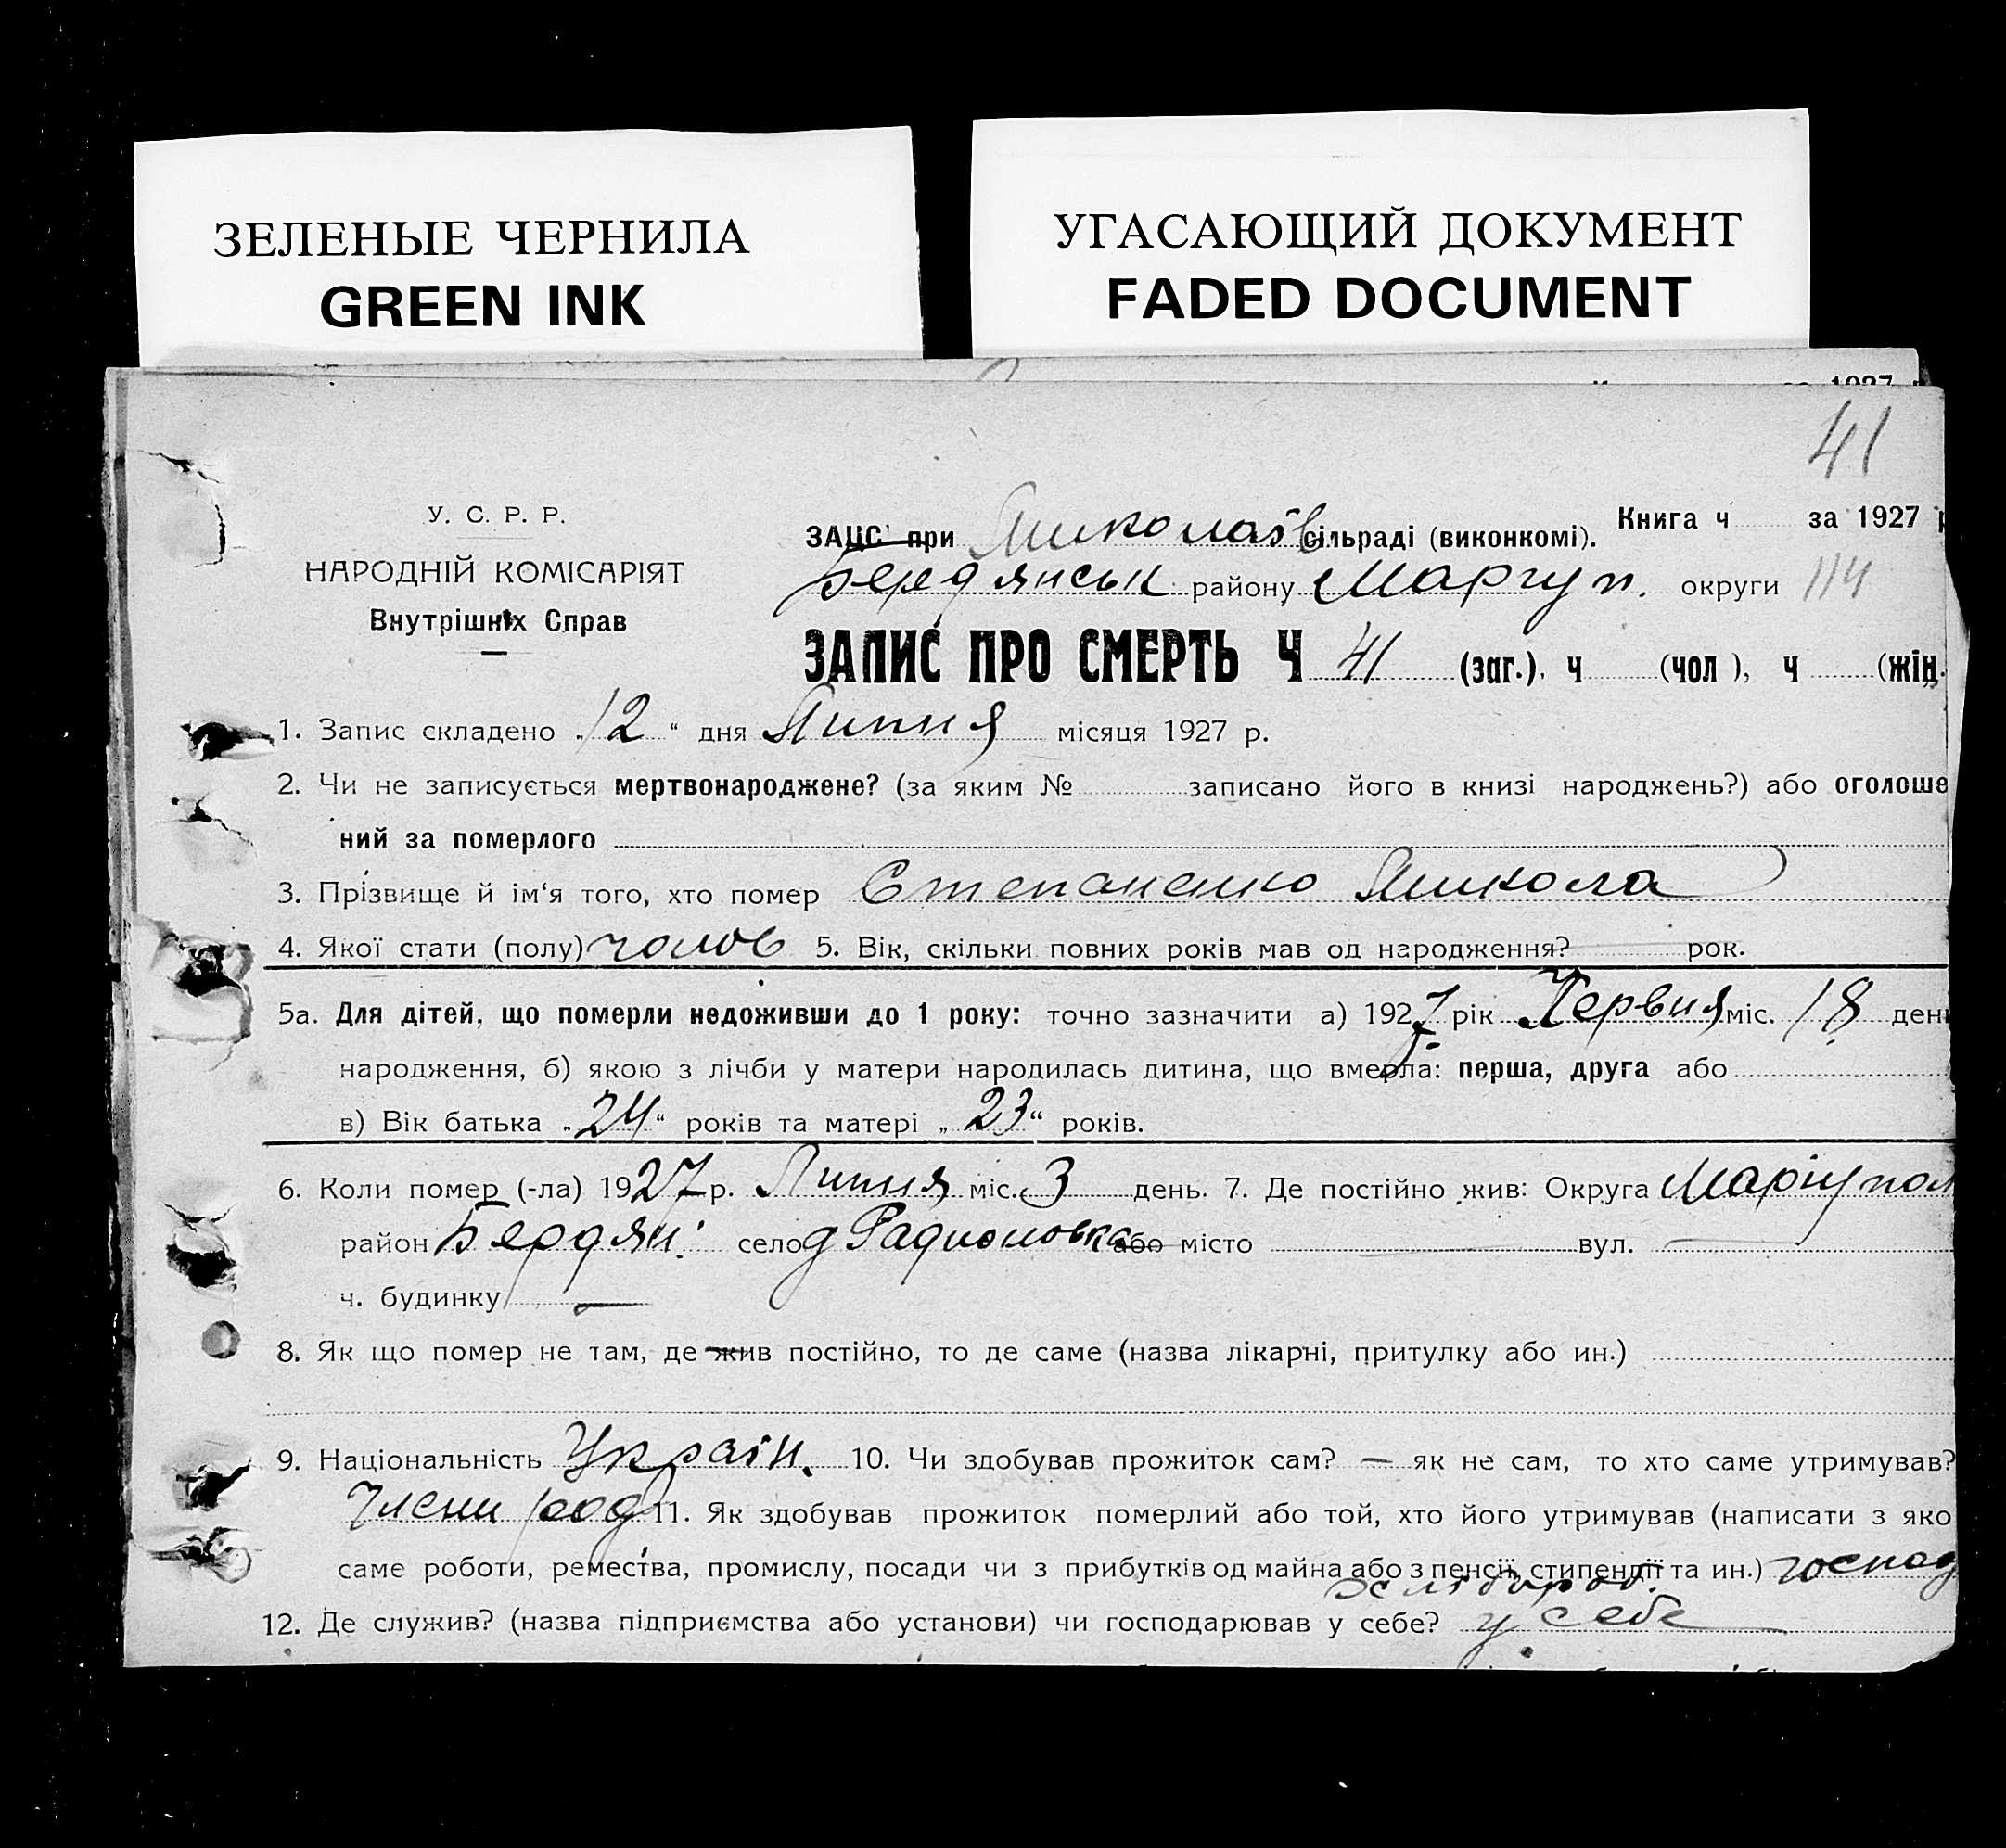 ЗЕЛЕНЫЕ ЧЕРНИЛА
GREEN INK
УГАСАЮЩИЙ ДОКУМЕНТ
FADED DOCUMENT
41
У. С. Р. Р.
НАРОДНІЙ КОМІСАРІЯТ
Внутрішніх Справ
Книга ч за 1927 р
ЗАЦС при Миколаїв сільраді (виконкомі).
Бердянськ району Маріуп. округи 114
ЗАПИС ПРО СМЕРТЬ Ч 41 (заг.), ч (чол ), ч (жін.
1. Запис складено „12“ дня Липня місяця 1927 р.
2. Чи не записується мертвонароджене? (за яким № записано його в книзі народжень?) або оголоше
ний за померлого
3. Прізвище й ім‘я того, хто помер Степаненко Микола
4. Якої стати (полу) чолов 5. Вік, скільки повних років мав од народження? рок.
5а. Для дітей, що померли недоживши до 1 року: точно зазначити а) 1927 рік Червня міс. 18 день
народження, б) якою з лічби у матери народилась дитина, що вмерла: перша, друга або
в) Вік батька „24“ років та матері „23“ років.
6. Коли помер (-ла) 1927 р. Липня міс. 3 день. 7. Де постійно жив: Округа Маріупол
район Бердян. село д Радионовка або місто вул.
ч. будинку —
8. Як що помер не там, де жив постійно, то де саме (назва лікарні, притулку або ин.)
9. Національність Україн. 10. Чи здобував прожиток сам? — як не сам, то хто саме утримував?
Члени род 11. Як здобував прожиток померлий або той, хто його утримував (написати з яко
саме роботи, ремества, промислу, посади чи з прибутків од майна або з пенсії, стипендії та ин.) господ
хлібороб.
12. Де служив? (назва підприємства або установи) чи господарював у себе? у себе